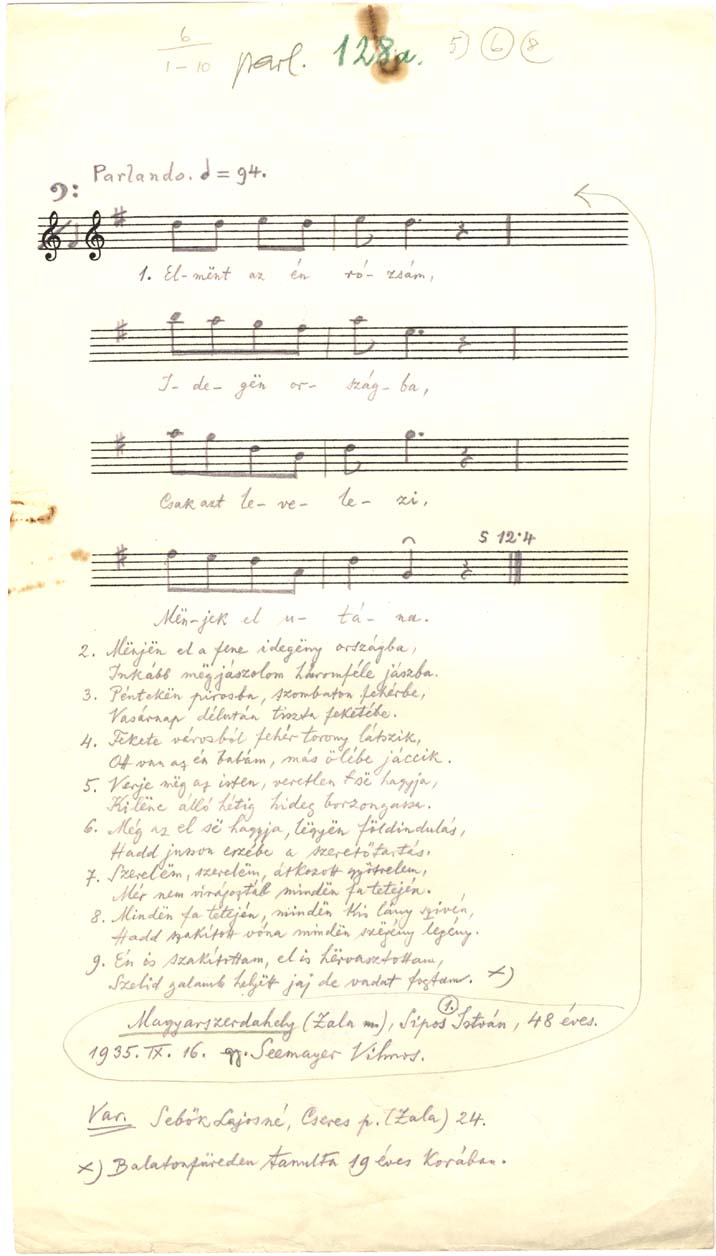 6
1–10 parl. 128a. 5) 6 8
Parlando. = 94.
1. El-mënt az én ró-zsám,
I-de-gën or-szág-ba,
Csak azt le-ve-le-zi,
5 12·4
Mën-jek el u-tá-na.
2. Mënjën el a fene idegëny országba,
Inkább mëgjászolom háromféle jászba.
3. Péntekën pirosba, szombaton fehérbe,
Vasárnap délután tiszta feketébe.
4. Fekete városból fehér torony látszik,
Ott van az én babám, más ölébe jáccik.
5. Verje mëg az isten, veretlen së hagyja,
Kilenc álló hétig hideg borzongassa.
6. Még az el së hagyja, légyën földindulás,
Hadd jusson eszébe a szeretőtartás.
7. Szerelëm, szerelëm, átkozott gyötrelem,
Mér nem virágoztál mindën fa tetején.
8. Mindën fa tetején, mindën kis lány szivén,
Hadd szakított vóna mindën szëgény legény.
9. Én is szakítottam, el is hërvasztottam,
Szelid galamb helyëtt jaj de vadat fogtam. x)
Magyarszerdahely (Zala m.), Sipos István, 48 éves.
1.
1935. IX. 16. gy. Seemayer Vilmos.
Var. Sebők Lajosné, Cseres p. (Zala) 24.
x) Balatonfüreden tanulta 19 éves korában.